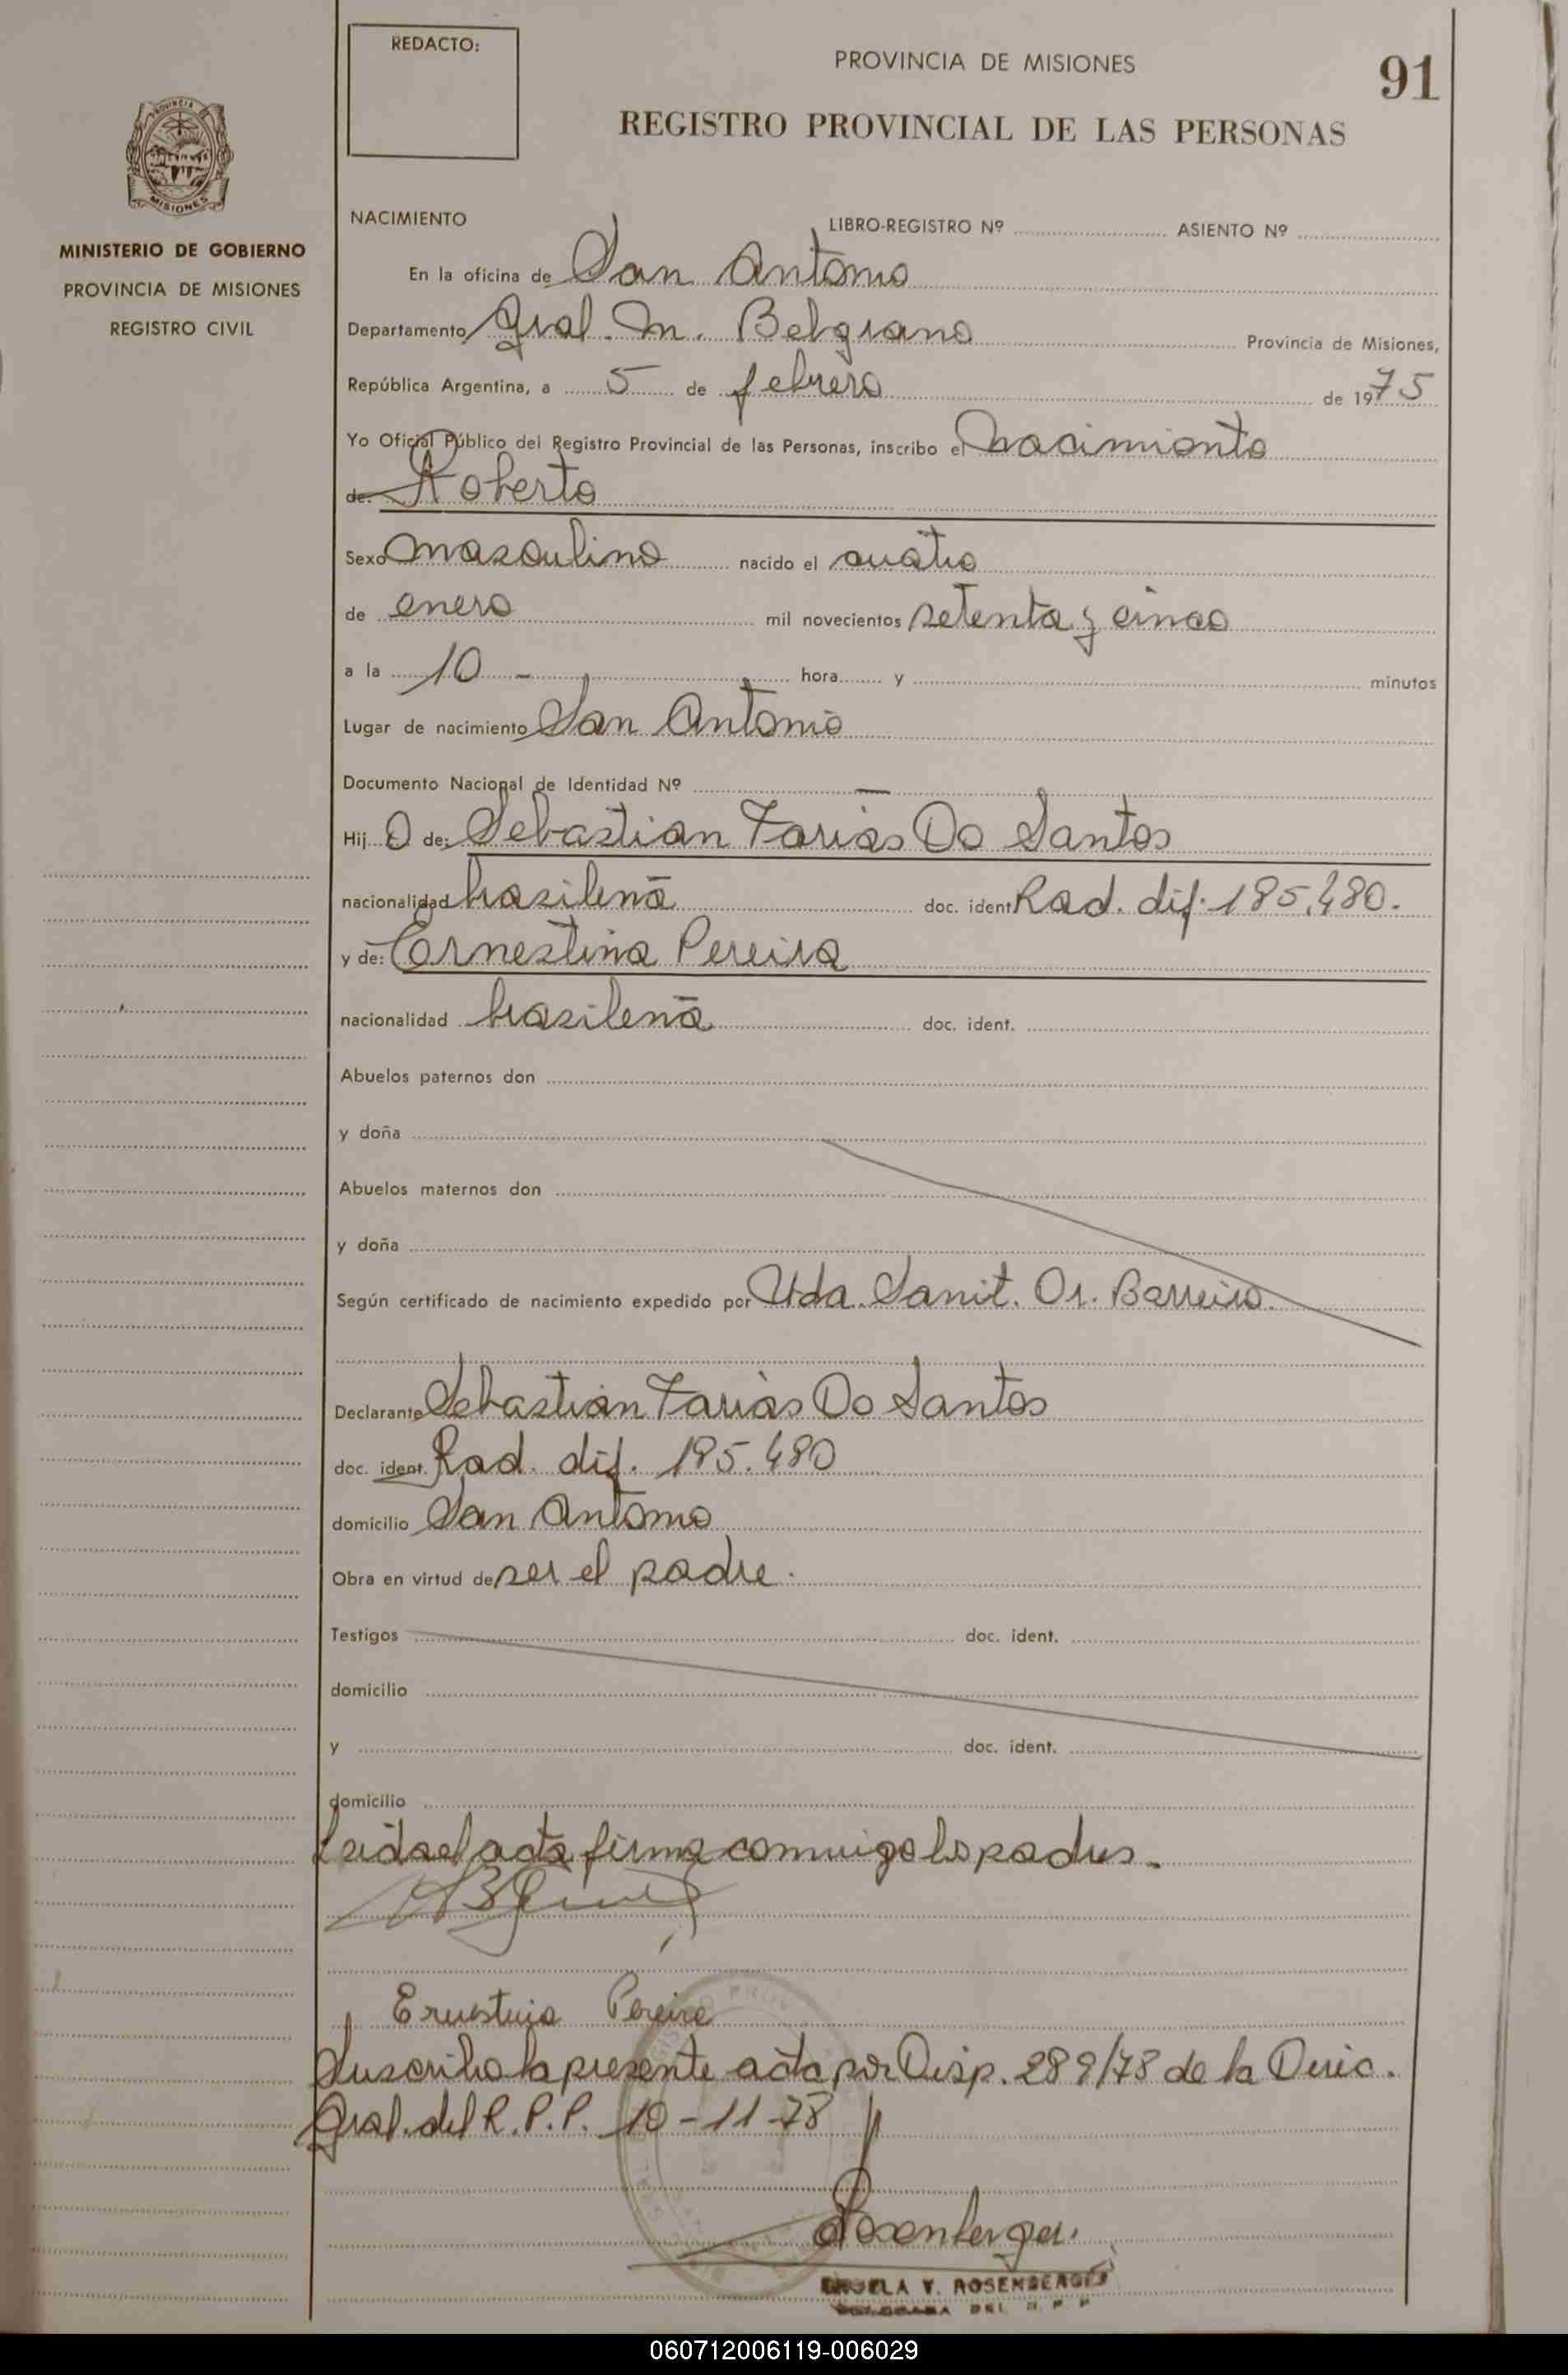 REDACTO:
PROVINCIA DE MISIONES
91
REGISTRO PROVINCIAL DE LAS PERSONAS
PROVINCIA
MISIONES
MINISTERIO DE GOBIERNO
PROVINCIA DE MISIONES
REGISTRO CIVIL
NACIMIENTO LIBRO-REGISTRO Nº ASIENTO Nº
En la oficina de San Antonio
Departamento Gral. M. Belgrano Provincia de Misiones,
República Argentina, a 5 de febrero de 1975
Yo Oficial Público del Registro Provincial de las Personas, inscribo el nacimiento
de: Roberto
Sexo masculino nacido el cuatro
de enero mil novecientos setenta y cinco
a la 10 - hora y minutos
Lugar de nacimiento San Antonio
Documento Nacional de Identidad Nº —
Hij o de: Sebastian Farias Do Santos
nacionalidad brasileña doc. ident. Rad. dif. 185.480.
y de: Ernestina Pereira
nacionalidad brasileña doc. ident.
Abuelos paternos don
y doña
Abuelos maternos don
y doña
Según certificado de nacimiento expedido por Uda. Sanit. Dr. Barreiro.
Declarante Sebastian Farias Do Santos
doc. ident. Rad. dif. 185.480
domicilio San Antonio
Obra en virtud de ser el padre.
Testigos doc. ident.
domicilio
y doc. ident.
domicilio
Leida el acta firma conmigo los padres.
Ernestina Pereira
Suscribo la presente acta por Disp. 289/78 de la Direc.
Gral. del R.P.P. 10-11-78
Rosenberger
V. ROSENBERGER
DEL R P P
060712006119-006029